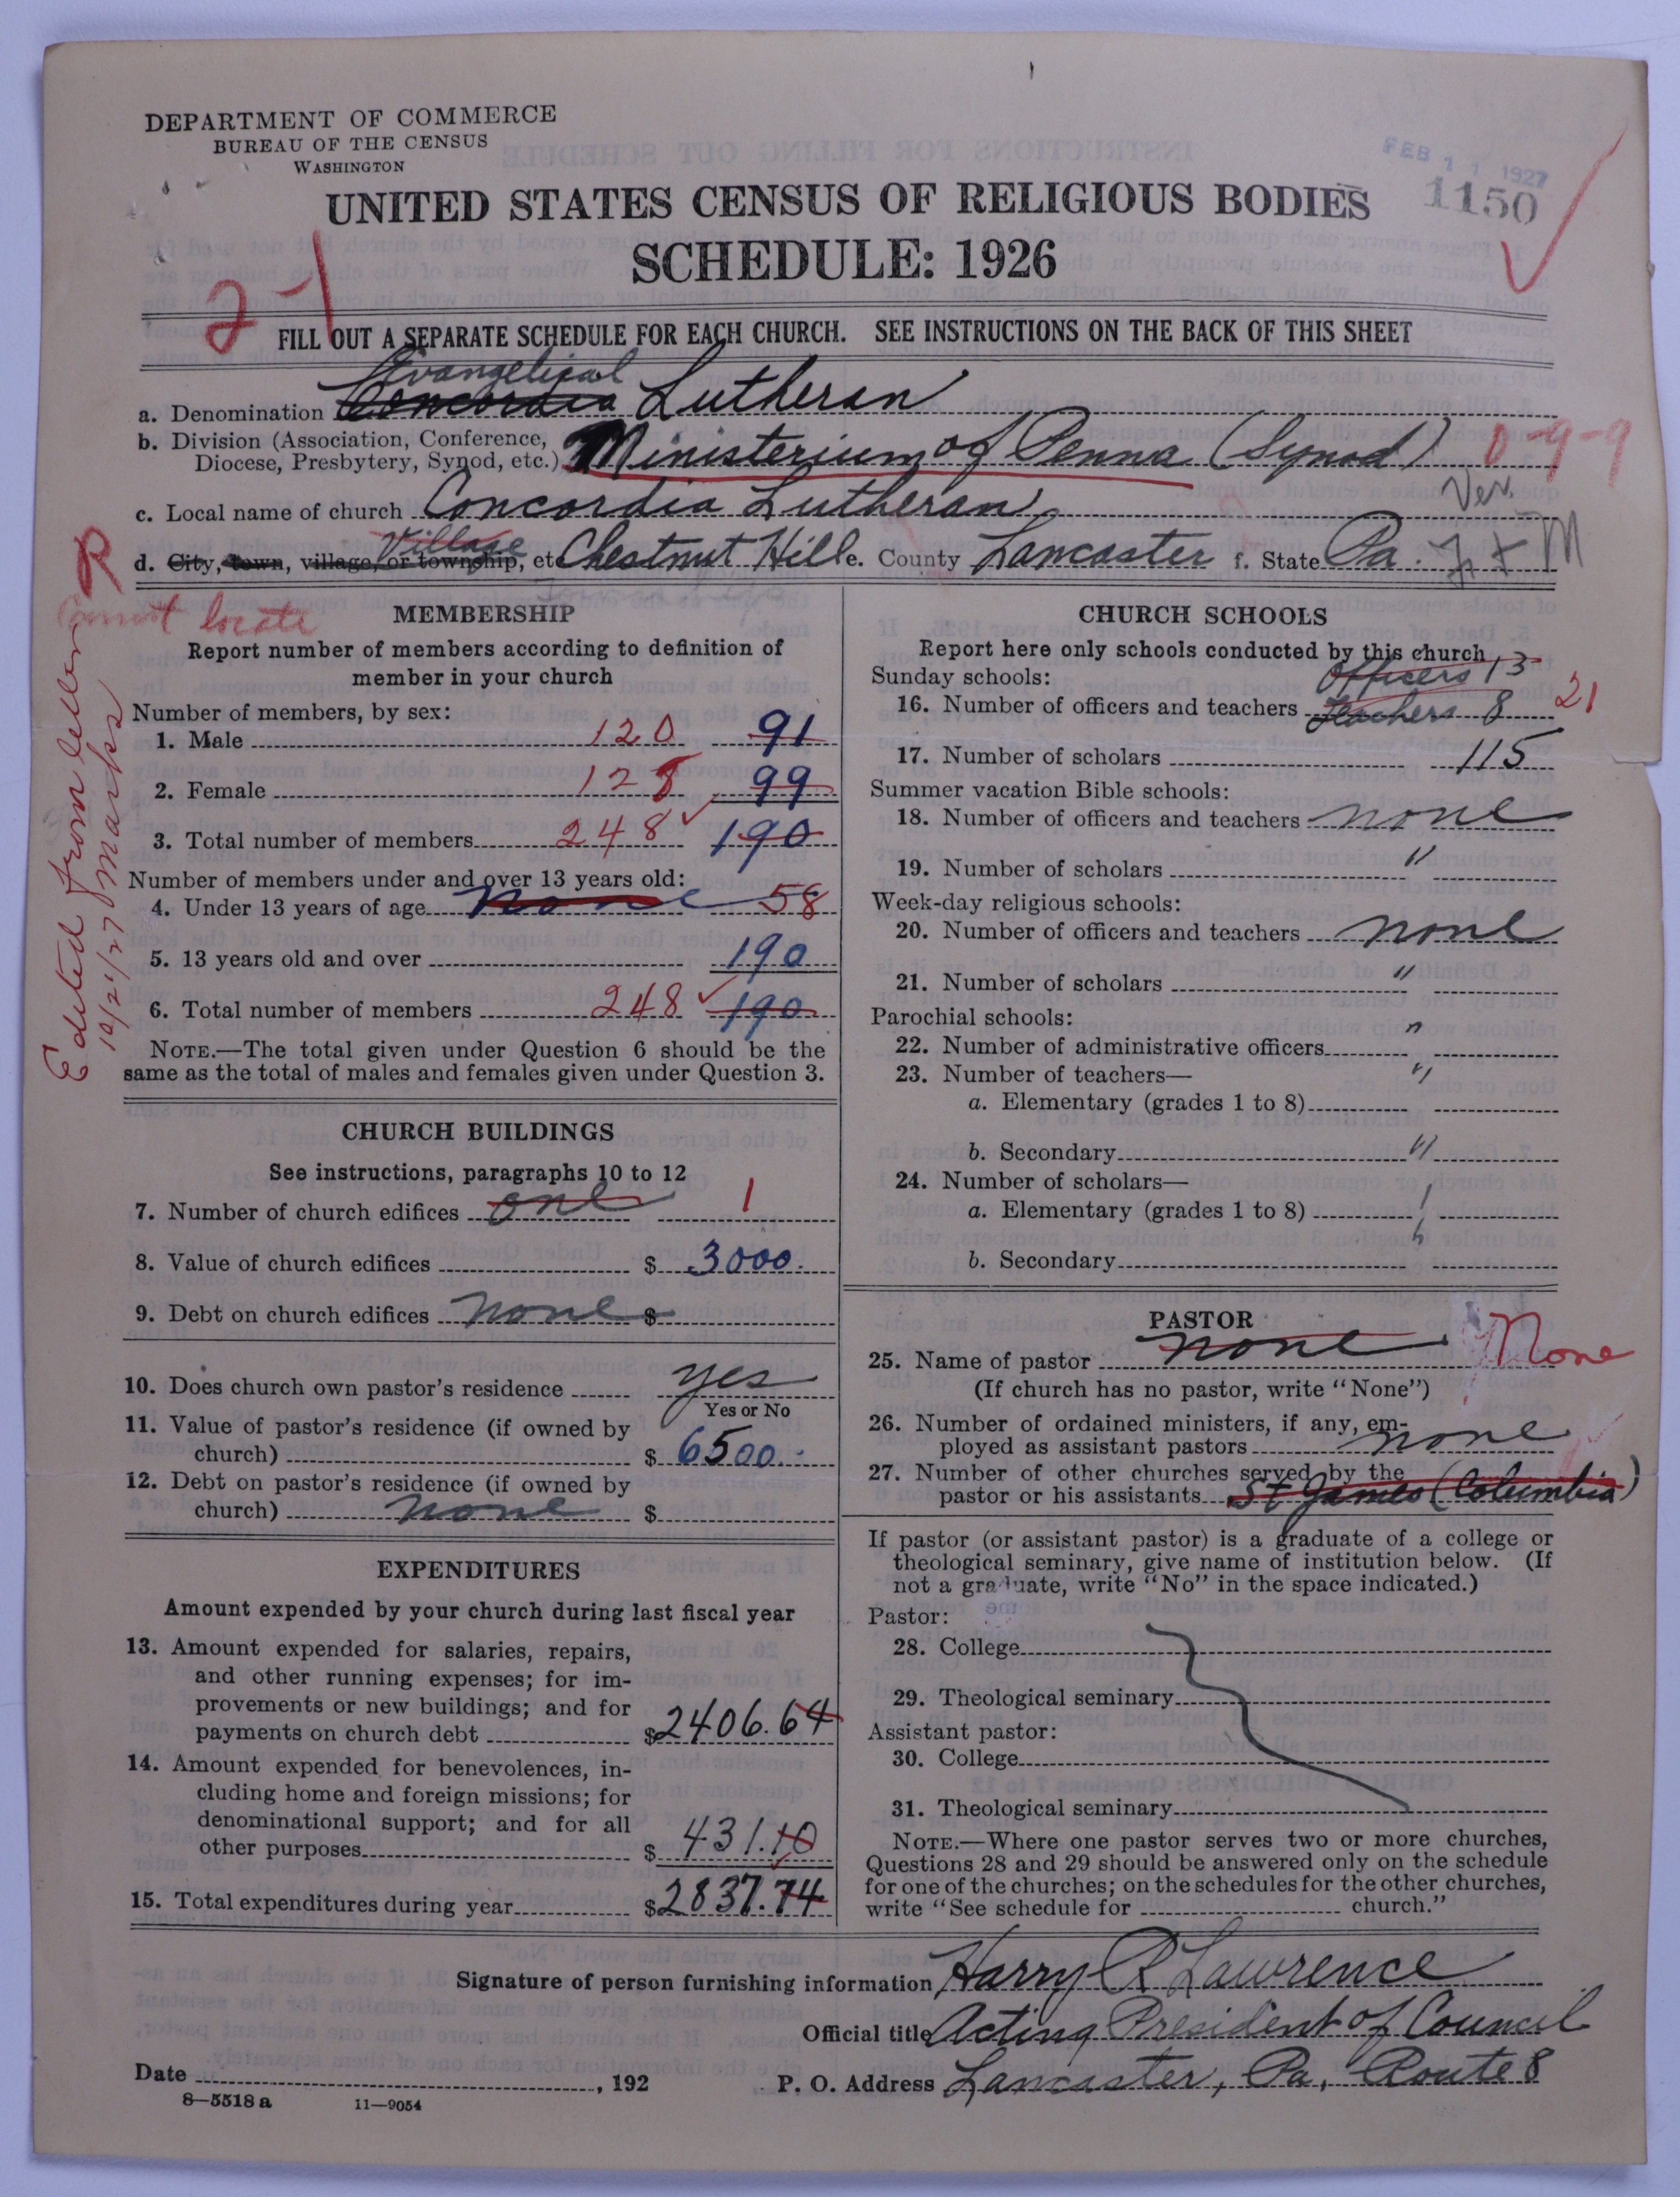 DEPARTMENT OF COMMERCE
BUREAU OF THE CENSUS
WASHINGTON
FEB 11 1927
1150
UNITED STATES CENSUS OF RELIGIOUS BODIES
SCHEDULE: 1926
2-1
FILL OUT A SEPARATE SCHEDULE FOR EACH CHURCH. SEE INSTRUCTIONS ON THE BACK OF THIS SHEET
Evangelical
a. Denomination Concordia Lutheran
b. Division (Association, Conference, Diocese, Presbytery, Synod, etc.) Ministerium of Penna (Synod) 0-9-9
Ver.
c. Local name of church Concordia Lutheran
Village
d. City, town, village, or township, etc. Chestnut Hill e. County Lancaster f. State Pa.
Cannot locate
Edited from letter
10/21/27 Marks
MEMBERSHIP
Report number of members according to definition of
member in your church
Number of members, by sex:
1. Male 120 91
2. Female 128 99
3. Total number of members 248 190
Number of members under and over 13 years old:
4. Under 13 years of age none 58
5. 13 years old and over 190
6. Total number of members 248 190
NOTE.—The total given under Question 6 should be the
same as the total of males and females given under Question 3.
CHURCH BUILDINGS
See instructions, paragraphs 10 to 12
7. Number of church edifices one 1
8. Value of church edifices $ 3000.
9. Debt on church edifices none $
10. Does church own pastor's residence yes
Yes or No
11. Value of pastor's residence (if owned by
church) $ 6500.
12. Debt on pastor's residence (if owned by
church) none $
EXPENDITURES
Amount expended by your church during last fiscal year
13. Amount expended for salaries, repairs,
and other running expenses; for im-
provements or new buildings; and for
payments on church debt $2406.64
14. Amount expended for benevolences, in-
cluding home and foreign missions; for
denominational support; and for all
other purposes $ 431.10
15. Total expenditures during year $2837.74
CHURCH SCHOOLS
Report here only schools conducted by this church
Sunday schools: Officers 13
16. Number of officers and teachers Teachers 8 21
17. Number of scholars 115
Summer vacation Bible schools:
18. Number of officers and teachers none
19. Number of scholars "
Week-day religious schools:
20. Number of officers and teachers none
21. Number of scholars "
Parochial schools:
22. Number of administrative officers "
23. Number of teachers— "
a. Elementary (grades 1 to 8)
b. Secondary "
24. Number of scholars—
a. Elementary (grades 1 to 8)
b. Secondary
PASTOR
25. Name of pastor none None
(If church has no pastor, write "None")
26. Number of ordained ministers, if any, em-
ployed as assistant pastors none
27. Number of other churches served by the
pastor or his assistants St James (Columbia)
If pastor (or assistant pastor) is a graduate of a college or
theological seminary, give name of institution below. (If
not a graduate, write "No" in the space indicated.)
Pastor:
28. College
29. Theological seminary
Assistant pastor:
30. College
31. Theological seminary
NOTE.—Where one pastor serves two or more churches,
Questions 28 and 29 should be answered only on the schedule
for one of the churches; on the schedules for the other churches,
write "See schedule for church."
Signature of person furnishing information Harry R Lawrence
Official title Acting President of Council
Date , 192
P. O. Address Lancaster, Pa, Route 8
8—5518 a 11—9054